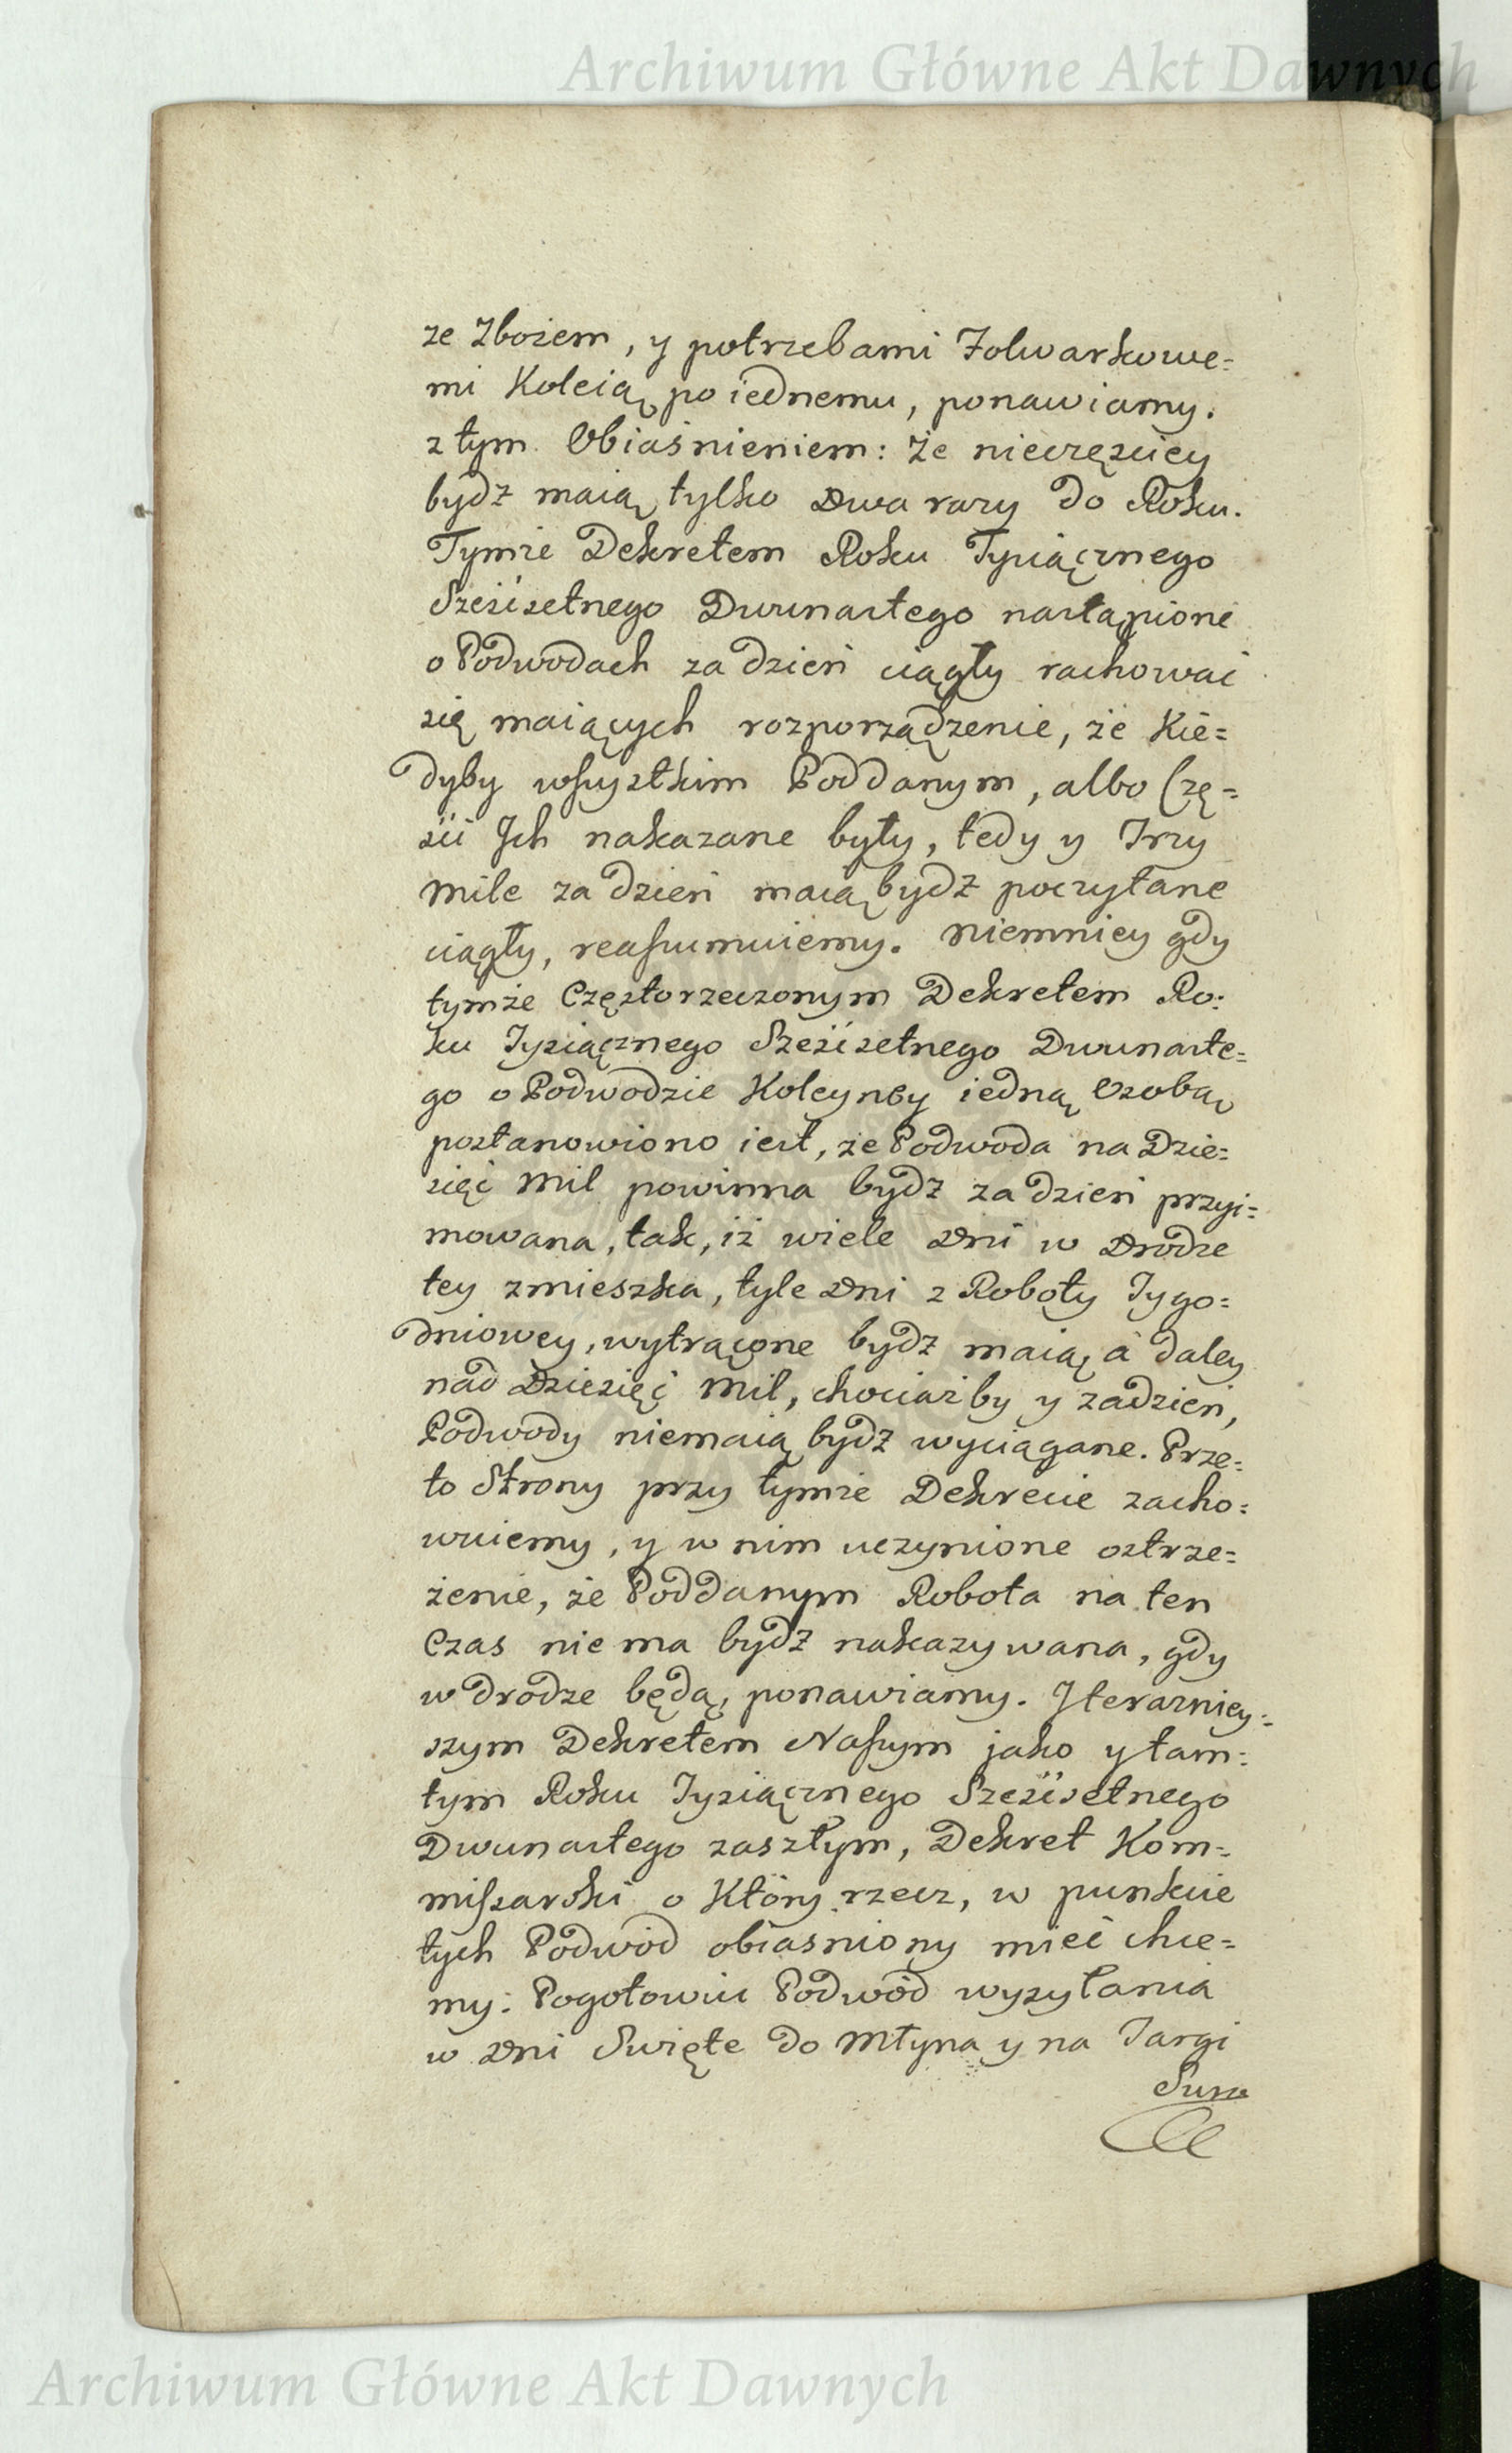 Archiwum Główne Akt Dawnych
ze Zbożem, y potrzebami Folwarkowe=
mi Koleią po iednemu, ponawiamy.
z tym Obiaśnieniem: że nieczęściey
bydź maią tylko Dwa razy do Roku.
Tymże Dekretem Roku Tysiącznego
Sześćsetnego Dwunastego nastąpione
o Podwodach za dzień ciągły rachować
się maiących rozporządzenie, że Kie=
dyby wszystkim Poddanym, albo Czę=
ści Ich nakazane były, tedy y Trzy
mile za dzień maią bydź poczytane
ciągły, reassumuiemy. Niemniey gdy
tymże Częstorzeczonym Dekretem Ro:
ku Tysiącznego Sześćsetnego Dwunaste=
go o Podwodzie Koleyney iedną Osobą
postanowiono iest, że Podwoda na Dzie=
sięć Mil powinna bydź za dzień przyi=
mowana, tak, iż wiele Dni w Drodze
tey zmieszka, tyle Dni z Roboty Tygo=
dniowey, wytrącone bydź maią, a daley
nad Dziesięć Mil, chociażby y zadzień,
Podwody niemaią bydź wyciągane. Prze=
to Strony przy tymże Dekrecie zacho=
wuiemy, y w nim uczynione ostrze=
żenie, że Poddanym Robota na ten
Czas nie ma bydź nakazywana, gdy
w drodze będą, ponawiamy. Iterazniey=
szym Dekretem Naszym jako y tam=
tym Roku Tysiącznego Sześćsetnego
Dwunastego zaszłym, Dekret Kom=
missarski o Który rzecz, w punkcie
tych Podwód obiasniony mieć chce=
my: Pogotowiu Podwód wysyłania
w Dni Swięte do Młyna y na Targi
Archiwum Główne Akt Dawnych